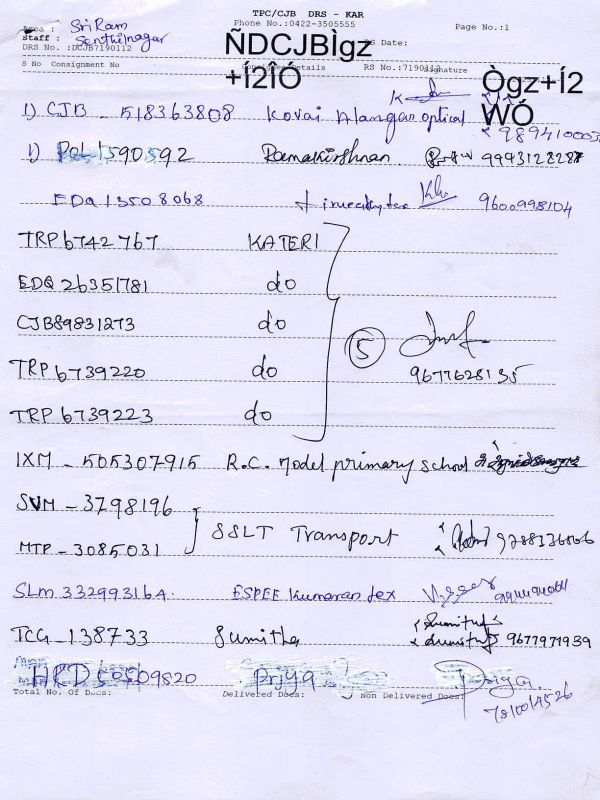 TPC/CJB DRS - KAR
Phone No.:0422-3505555
Page No.:1
Area : Sri Ram
Staff : Senthilnagar
DRS No. :DCJB7190112
ÑDCJBÌgz
+Í2ÎÓ
DRS Date:
S No Consignment No Consignee Details RS No.:7190112 Signature
Ògz+Í2
WÓ
1) CJB - 518363808 Kovai Alangar optical
1) POL 1590592 Ramakrishnan 9993128287
EDQ 13508068 9600998104
TRP 6742767 KATERI
EDQ 26351781 do
CJB89831273 do
5
TRP 6739220 do 9677628135
TRP 6739223 do
IXM - 505307915 R.C. Model primary school
SVM - 3798196
SSLT Transport
MTP - 3085031
SLM 332993164 ESPEE Kumaran tex
TCG - 138733 Sumitha 9677971939
HRD 50509820 Priya Priya
Total No. Of Docs: Delivered Docs: Non Delivered Docs: